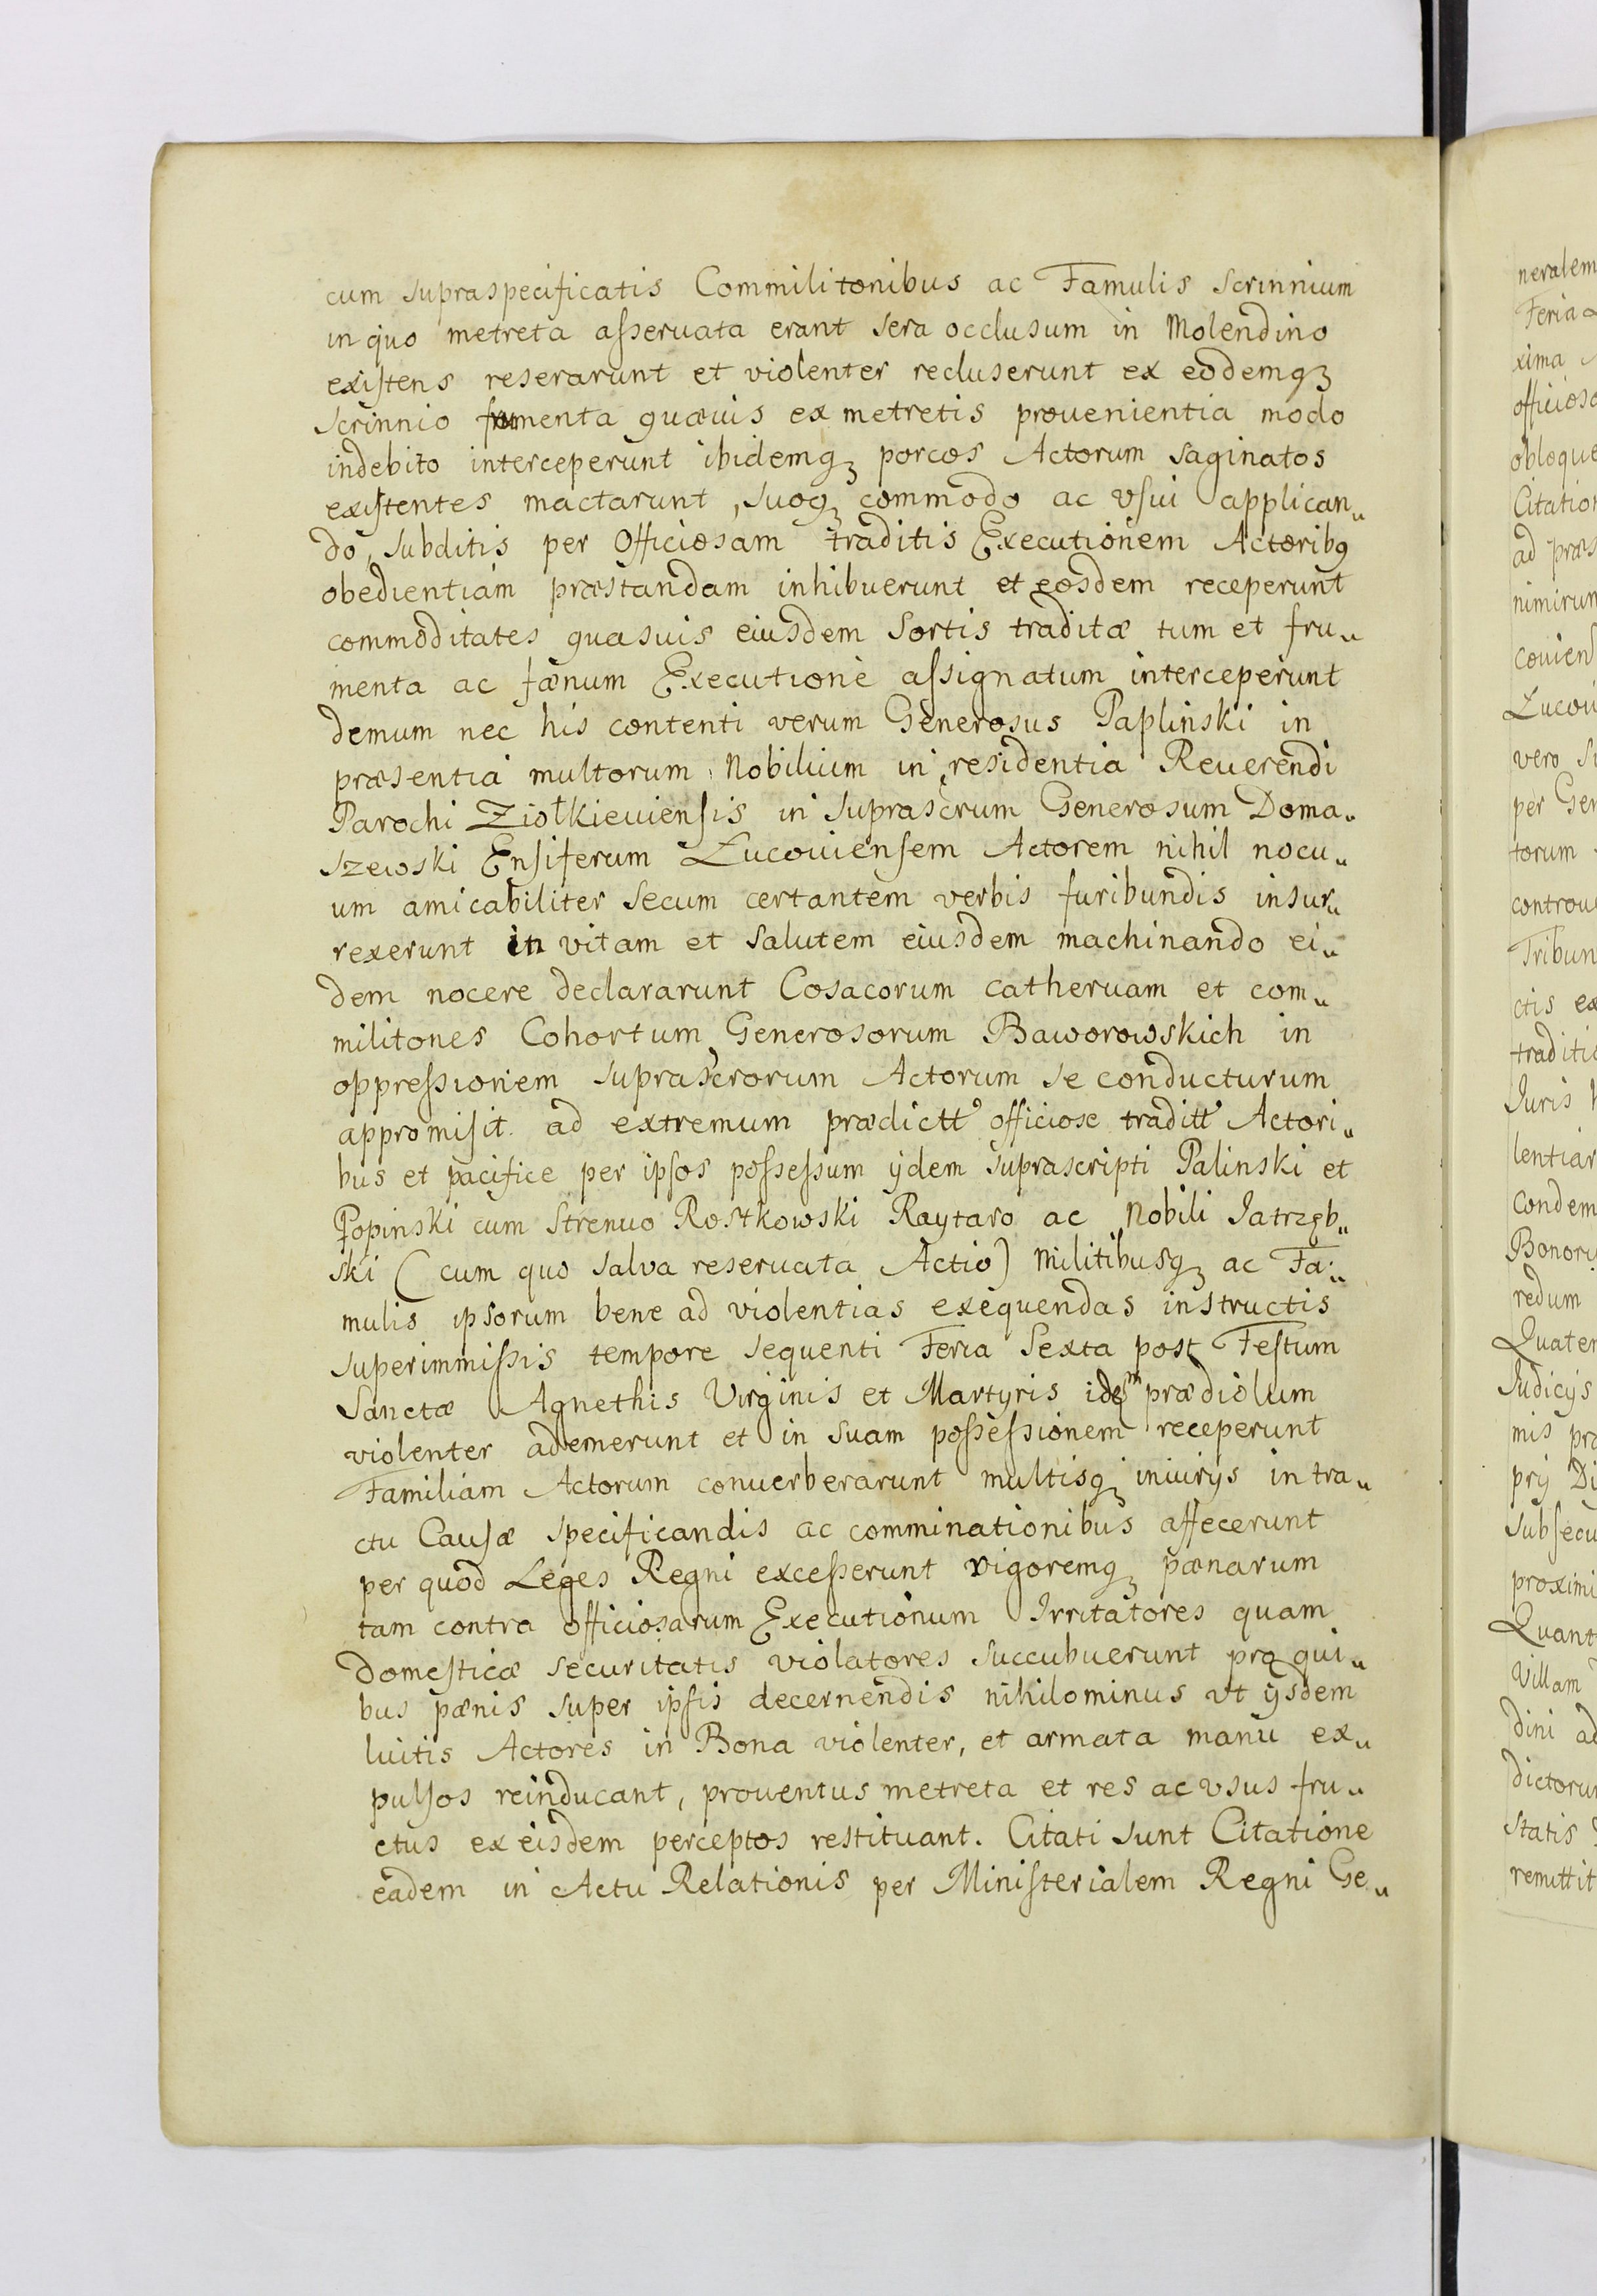 cum supraspecificatis Commilitonibus ac Famulis scrinnium
in quo metreta asseruata erant sera occlusum in Molendino
existens reserarunt et violenter recluserunt ex eodemqꝫ
scrinnio frumenta quæuis ex metretis prouenientia modo
indebito interceperunt ibidemqꝫ porcos Actorum saginatos
existentes mactarunt, suoqꝫ commodo ac vsui applican„
do, subditis per Officiosam traditis Executionem Actoribꝯ
obedientiam præstandam inhibuerunt et eosdem receperunt
commoditates quasuis eiusdem Sortis traditæ tum et fru„
menta ac fænum Executione assignatum interceperunt
demum nec his contenti verum Generosus Paplinski in
præsentia multorum Nobilium in residentia Reuerendi
Parochi Ziołkieuiensis in suprascrum Generosum Doma„
szewski Ensiferum Łucouiensem Actorem nihil nocu„
um amicabiliter secum certantem verbis furibundis insur„
rexerunt in vitam et salutem eiusdem machinando ei„
dem nocere declararunt Cosacorum catheruam et com„
militones Cohortum Generosorum Baworowskich in
oppressionem suprascrorum Actorum se conducturum
appromisit. ad extremum prædictt᾽ officiose traditt᾽ Actori„
bus et pacifice per ipsos possessum ijdem suprascripti Palinski et
Popinski cum Strenuo Rostkowski Raytaro ac Nobili Jatrzęb„
ski (cum quo salva reseruata Actio) Militibusqꝫ ac Fa„
mulis ipsorum bene ad violentias exequendas instructis
superimmissis tempore sequenti Feria Sexta post Festum
Sanctæ Agnethis Virginis et Martyris idem prædiolum
violenter ademerunt et in suam possessionem receperunt
Familiam Actorum conuerberarunt multisqꝫ iniurijs in tra„
ctu Causæ specificandis ac comminationibus affecerunt
per quod Leges Regni excesserunt vigoremqꝫ pænarum
tam contra officiosarum Executionum Irritatores quam
domesticæ securitatis violatores succubuerunt pro qui„
bus pænis super ipsis decernendis nihilominus vt ijsdem
luitis Actores in Bona violenter, et armata manu ex„
pulsos reinducant, prouentus metreta et res ac vsus fru„
ctus ex eisdem perceptos restituant. Citati sunt Citatione
eadem in Actu Relationis per Ministerialem Regni Ge„